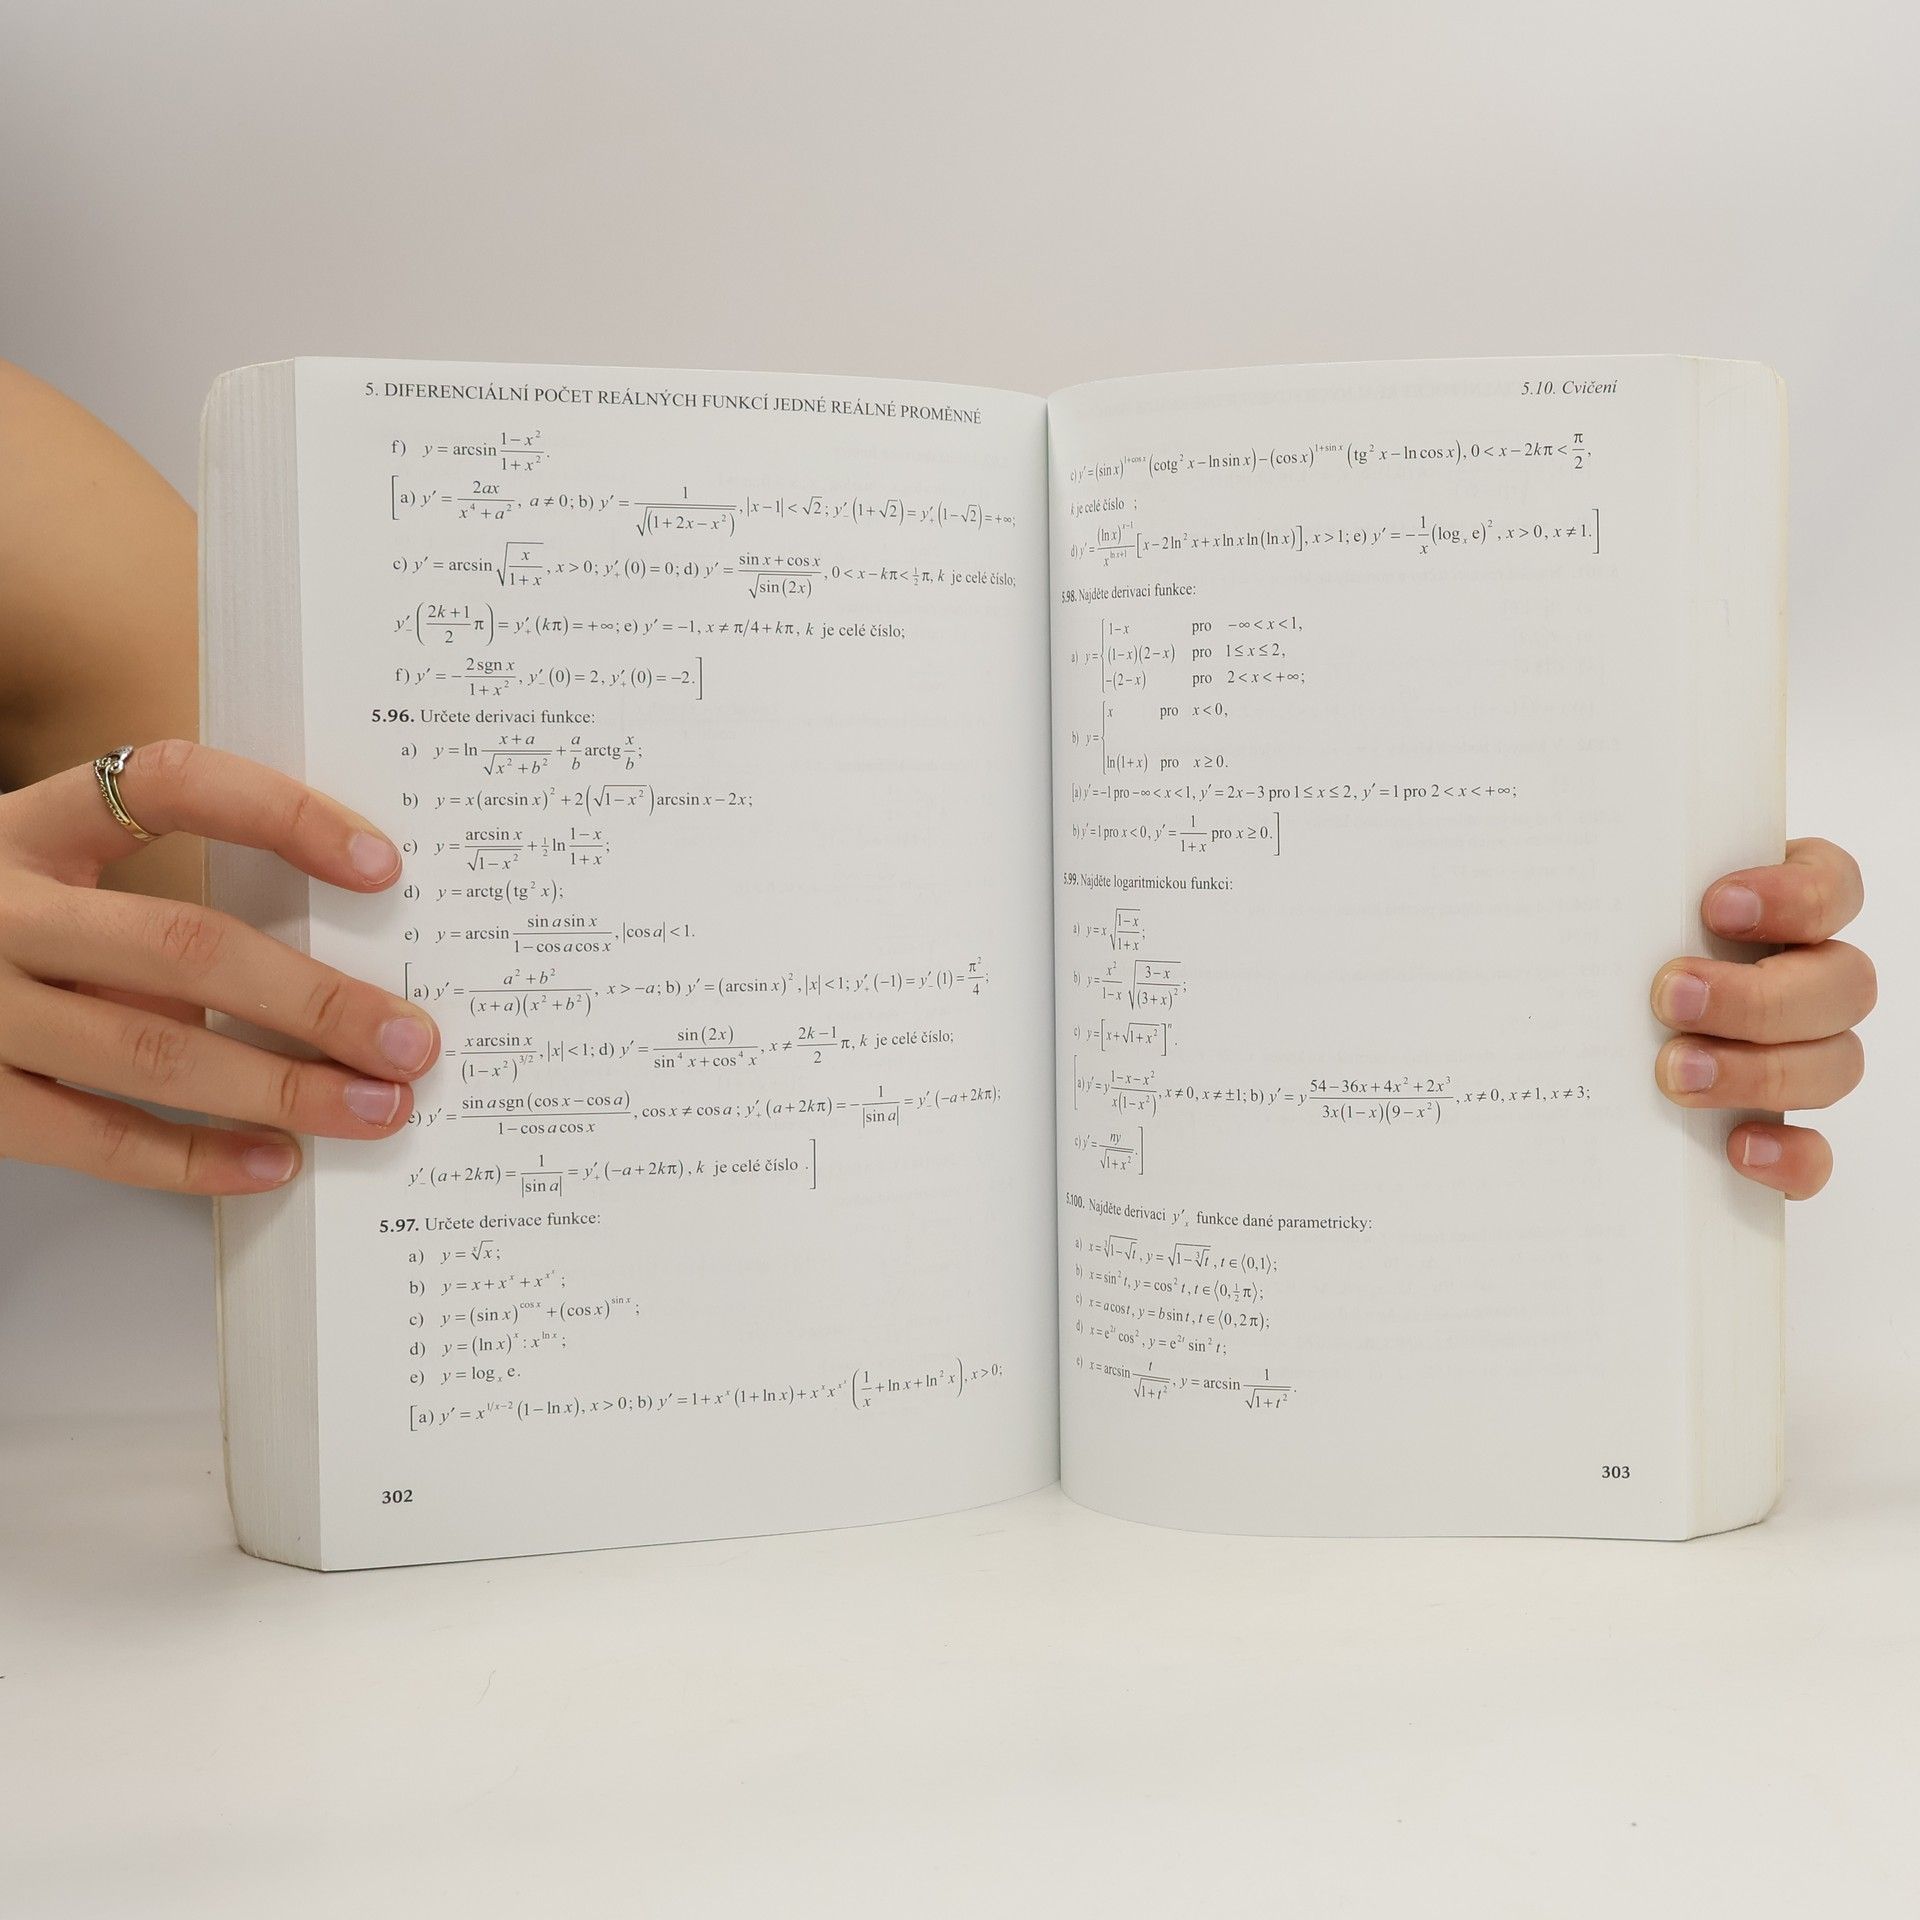 5. DIFERENCIÁLNÍ POČET REÁLNÝCH FUNKCÍ JEDNÉ REÁLNÉ PROMĚNNÉ
f) y = arcsin (1−x²)/(1+x²).
[a) y′ = 2ax/(x⁴+a²), a ≠ 0; b) y′ = 1/√((1+2x−x²)), |x−1| < √2; y′₋(1+√2) = y′₊(1−√2) = +∞;
c) y′ = arcsin √(x/(1+x)), x > 0; y′₊(0) = 0; d) y′ = (sin x + cos x)/√(sin(2x)), 0 < x − kπ < ½π, k je celé číslo;
y′₋((2k+1)/2 π) = y′₊(kπ) = +∞; e) y′ = −1, x ≠ π/4 + kπ, k je celé číslo;
f) y′ = −(2 sgn x)/(1+x²), y′₋(0) = 2, y′₊(0) = −2.]
5.96. Určete derivaci funkce:
a) y = ln (x+a)/√(x²+b²) + a/b arctg x/b;
b) y = x(arcsin x)² + 2(√(1−x²)) arcsin x − 2x;
c) y = arcsin x/√(1−x²) + ½ ln (1−x)/(1+x);
d) y = arctg(tg² x);
e) y = arcsin (sin a sin x)/(1−cos a cos x), |cos a| < 1.
[a) y′ = (a²+b²)/((x+a)(x²+b²)), x > −a; b) y′ = (arcsin x)², |x| < 1; y′₊(−1) = y′₋(1) = π²/4;
= (x arcsin x)/(1−x²)^(3/2), |x| < 1; d) y′ = sin(2x)/(sin⁴ x + cos⁴ x), x ≠ (2k−1)/2 π, k je celé číslo;
e) y′ = (sin a sgn(cos x − cos a))/(1−cos a cos x), cos x ≠ cos a; y′₊(a+2kπ) = −1/|sin a| = y′₋(−a+2kπ);
y′₋(a+2kπ) = 1/|sin a| = y′₊(−a+2kπ), k je celé číslo .]
5.97. Určete derivace funkce:
a) y = ˣ√x;
b) y = x + x^x + x^(x^x);
c) y = (sin x)^(cos x) + (cos x)^(sin x);
d) y = (ln x)^x : x^(ln x);
e) y = logₓ e.
[a) y′ = x^(1/x−2) (1−ln x), x > 0; b) y′ = 1 + x^x (1+ln x) + x^x x^(x^x) (1/x + ln x + ln² x), x > 0;
302
5.10. Cvičení
c) y′ = (sin x)^(1+cos x) (cotg² x − ln sin x) − (cos x)^(1+sin x) (tg² x − ln cos x), 0 < x − 2kπ < π/2,
k je celé číslo ;
d) y′ = (ln x)^(x−1)/x^(ln x+1) [x − 2 ln² x + x ln x ln(ln x)], x > 1; e) y′ = −1/x (logₓ e)², x > 0, x ≠ 1.]
5.98. Najděte derivaci funkce:
a) y = { 1−x pro −∞ < x < 1,
(1−x)(2−x) pro 1 ≤ x ≤ 2,
−(2−x) pro 2 < x < +∞;
b) y = { x pro x < 0,
ln(1+x) pro x ≥ 0.
[a) y′ = −1 pro −∞ < x < 1, y′ = 2x−3 pro 1 ≤ x ≤ 2, y′ = 1 pro 2 < x < +∞;
b) y′ = 1 pro x < 0, y′ = 1/(1+x) pro x ≥ 0.]
5.99. Najděte logaritmickou funkci:
a) y = x √((1−x)/(1+x));
b) y = x²/(1−x) √((3−x)/(3+x)²);
c) y = [x + √(1+x²)]ⁿ.
[a) y′ = y (1−x−x²)/(x(1−x²)), x ≠ 0, x ≠ ±1; b) y′ = y (54−36x+4x²+2x³)/(3x(1−x)(9−x²)), x ≠ 0, x ≠ 1, x ≠ 3;
c) y′ = ny/√(1+x²).]
5.100. Najděte derivaci y′ₓ funkce dané parametricky:
a) x = ³√(1−√t), y = √(1−³√t), t ∈ ⟨0,1⟩;
b) x = sin² t, y = cos² t, t ∈ ⟨0, ½π⟩;
c) x = a cos t, y = b sin t, t ∈ ⟨0, 2π⟩;
d) x = e^(2t) cos², y = e^(2t) sin² t;
e) x = arcsin t/√(1+t²), y = arcsin 1/√(1+t²).
303